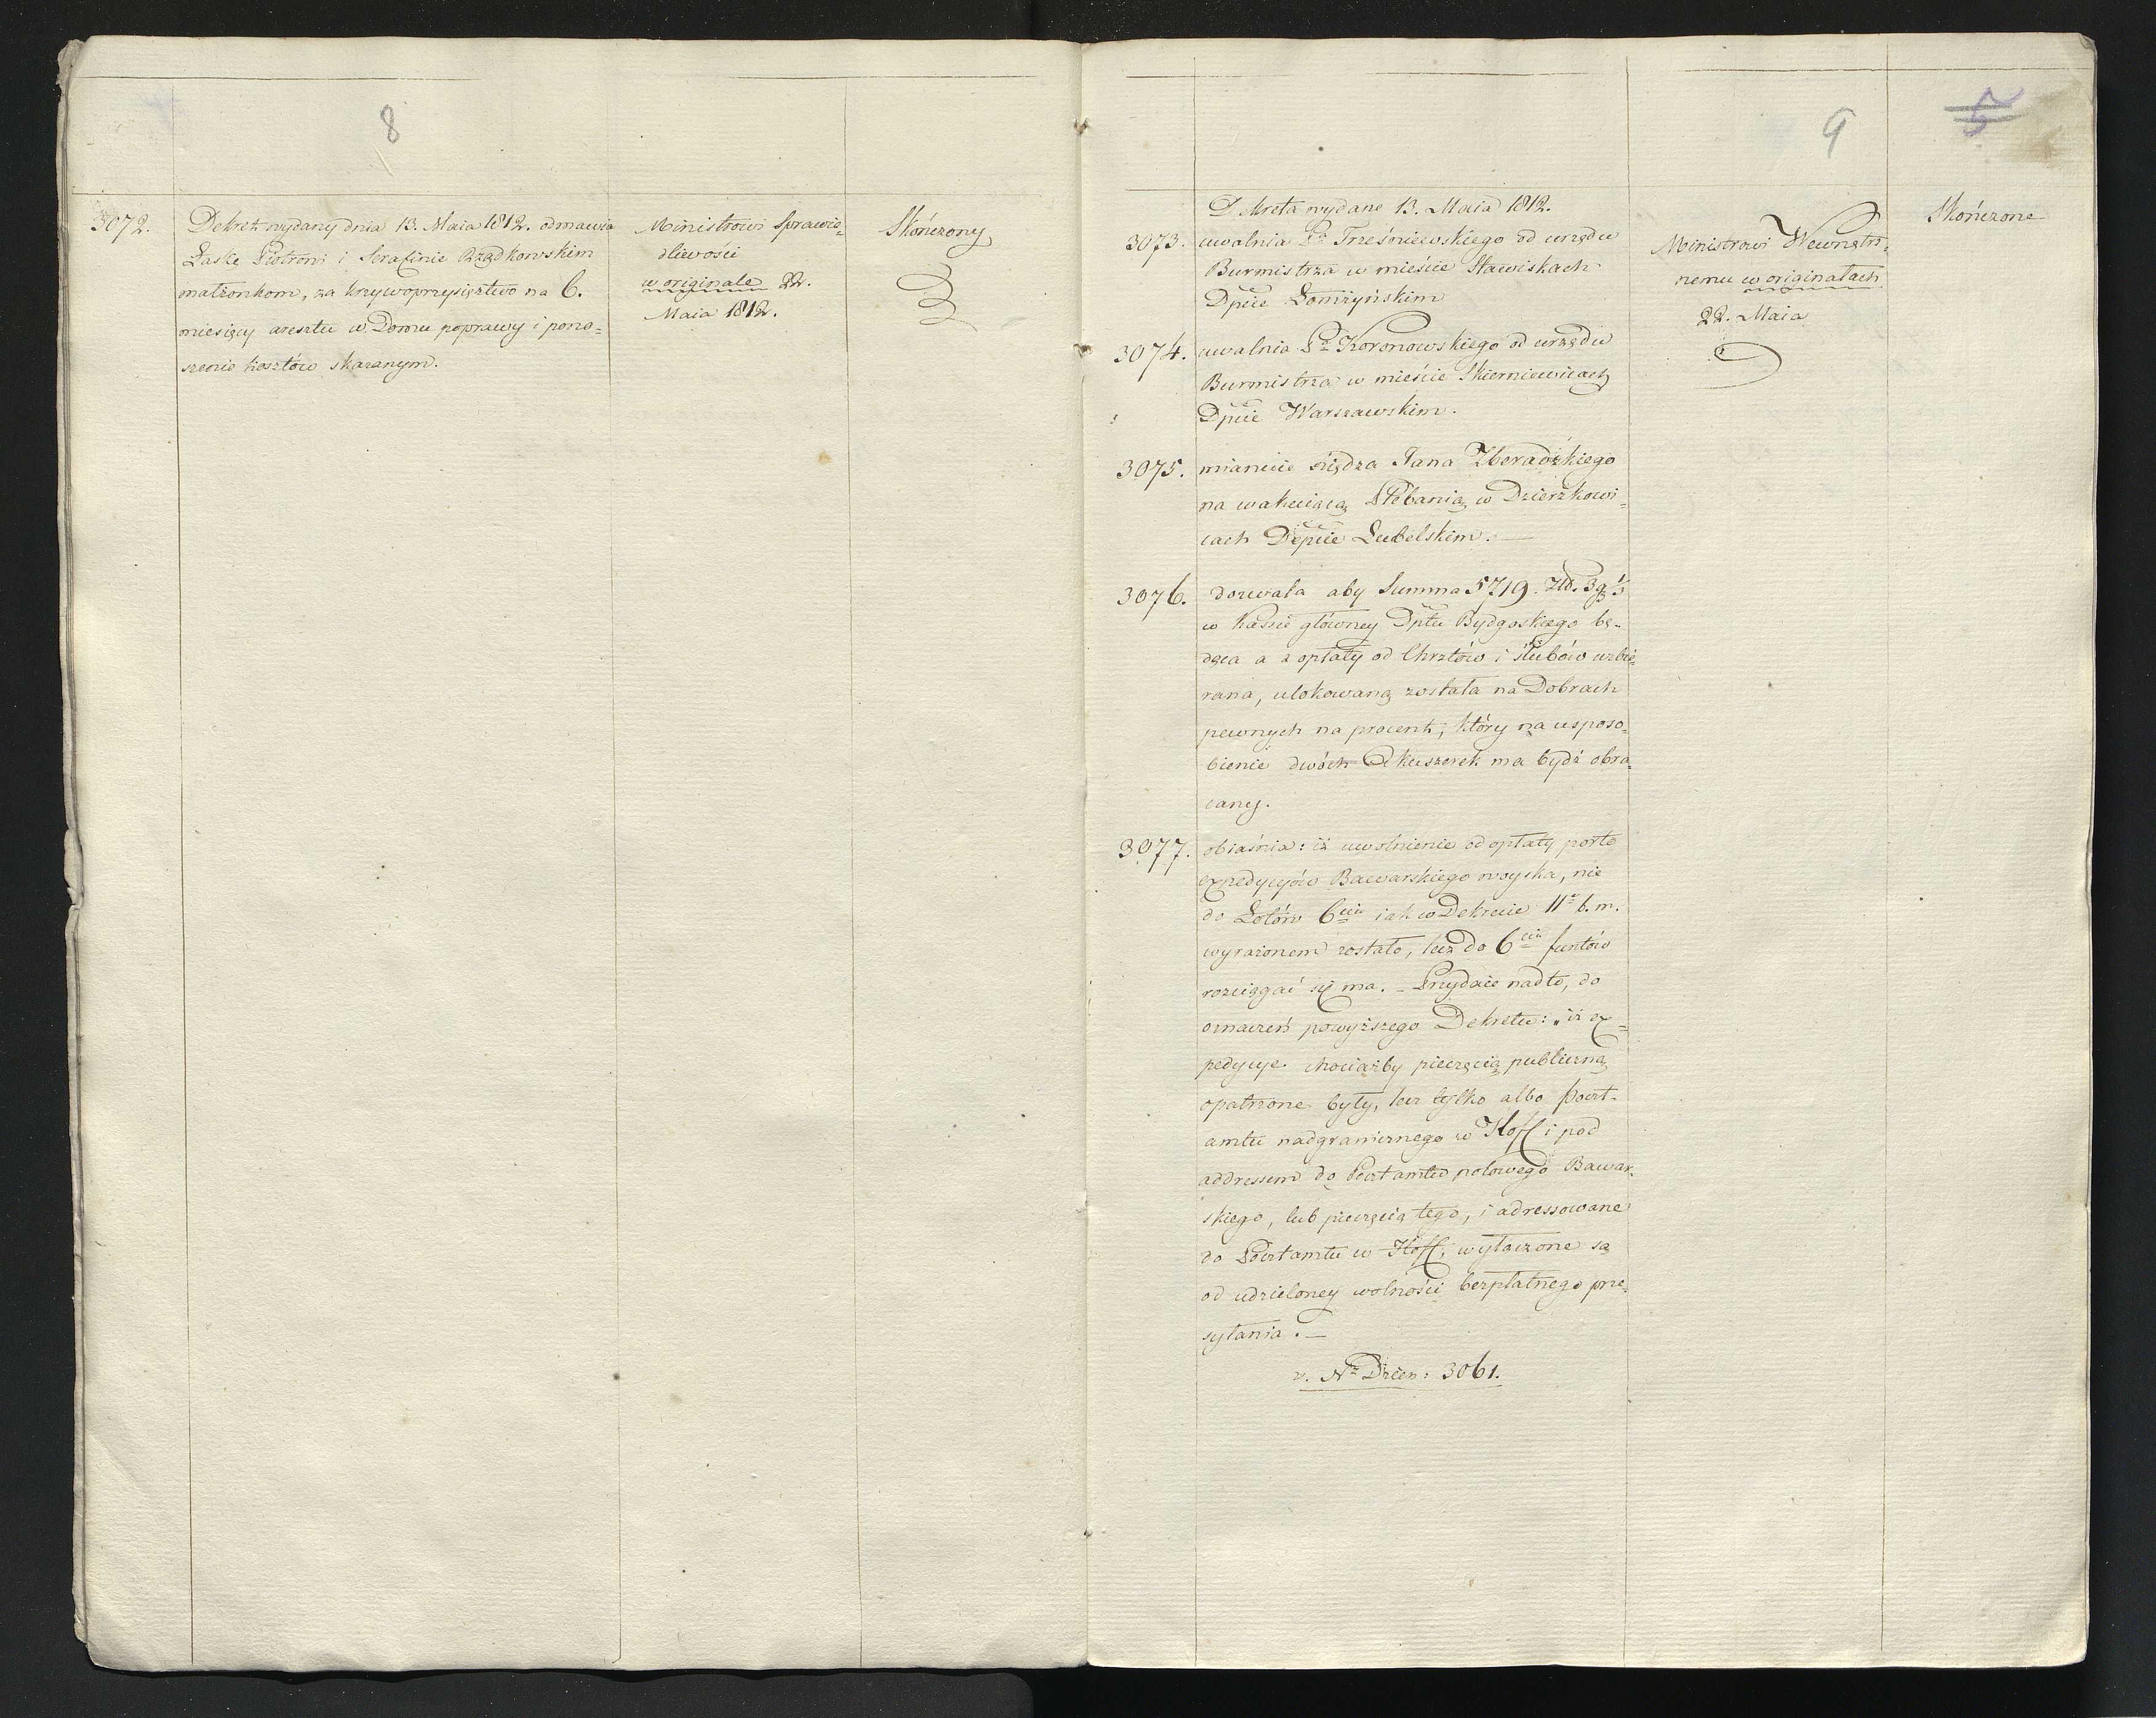 8
3072.
Dekret wydany dnia 13. Maia 1812. odmawia
Łaskę Piotrowi i Serafinie Rządkowskim
małżonkom, za krzywoprzysięztwo na 6.
miesięcy aresztu w Domu poprawy i pono=
szenie kosztów skazanym.
Ministrowi Sprawie=
dliwości
w originale 22.
Maia 1812.
Skończony
9
5
Dekreta wydane 13. Maia 1812.
3073. uwalnia Pa Trześniewskiego od urzędu
Burmistrza w mieście Stawiskach
Dpcie Łomżyńskim
3074. uwalnia Pa Koronowskiego od urzędu
Burmistrza w mieście Skierniewicach
Dpcie Warszawskim.
3075. mianuie Xiędza Jana Zboradzkiego
na wakuiącą Plebanią w Dzierzkowi=
cach Depcie Lubelskim. —
3076. dozwala aby Summa 5719. Złd. 3 g 1/3
w kassie główney Dptu Bydgoskiego bę=
dąca a z opłaty od Chrztów i ślubów uzbie=
rana, ulokowaną została na Dobrach
pewnych na procent, który na usposo=
bienie dwóch Akuszerek ma bydź obra=
cany.
3077. obiaśnia: iż uwolnienie od opłaty porto
expedycyów Bawarskiego woyska, nie
do Łotów 6ciu iak w Dekrecie 11o b. m.
wyrażonem zostało, lecz do 6ciu funtów
rozciągać się ma. – Przydaie nadto, do
oznaczeń powyższego Dekretu: „iż ex=
pedycye chociażby pieczęcią publiczną
opatrzone były, lecz tylko albo Poczt=
amtu nadgranicznego w Hoff i pod
addressem do Pocztamtu polowego Bawar=
skiego, lub pieczęcią tego, i adressowane
do Pocztamtu w Hoff, wyłączone są
od udzieloney wolności bezpłatnego prze=
syłania. —
v. Nr Dzien: 3061.
Ministrowi Wewnętrz=
nemu w originałach
22. Maia
Skończone